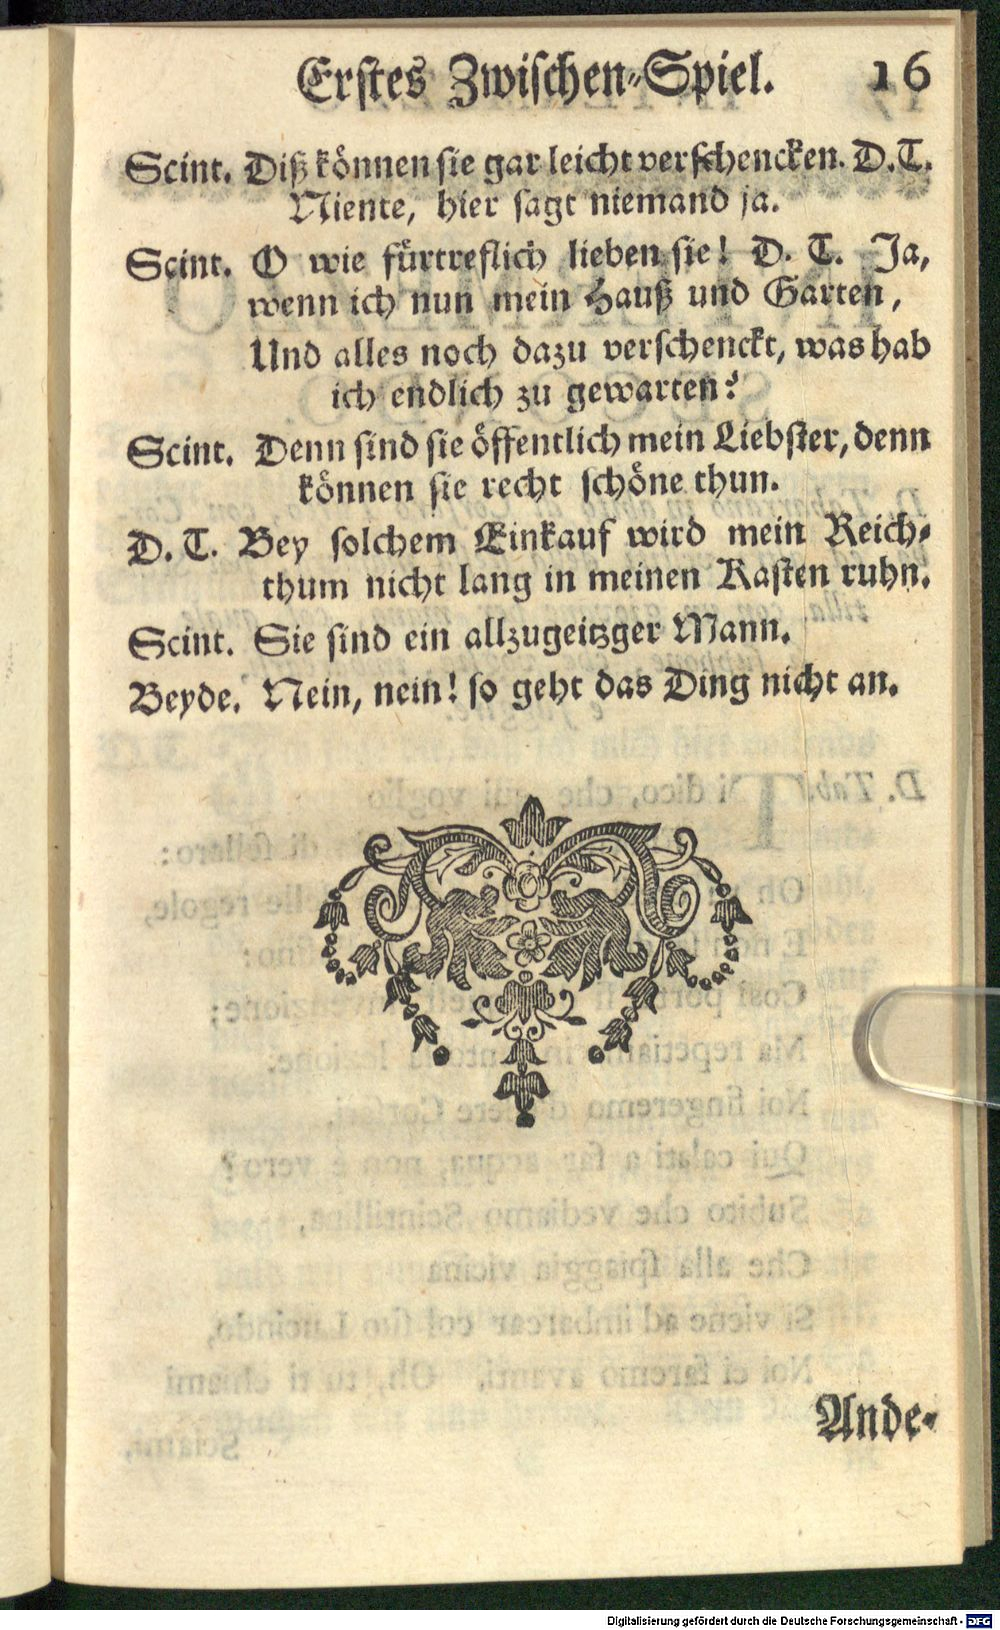 Erstes Zwischen-Spiel. 16
Scint. Diß können sie gar leicht verschencken. D.T.
Niente, hier sagt niemand ja.
Scint. O wie fürtreflich lieben sie! D. T. Ja,
wenn ich nun mein Hauß und Garten,
Und alles noch dazu verschenckt, was hab
ich endlich zu gewarten?
Scint. Denn sind sie öffentlich mein Liebster, denn
können sie recht schöne thun.
D. T. Bey solchem Einkauf wird mein Reich-
thum nicht lang in meinen Kasten ruhn.
Scint. Sie sind ein allzugeitzger Mann.
Beyde. Nein, nein! so geht das Ding nicht an.
Ande-
Digitalisierung gefördert durch die Deutsche Forschungsgemeinschaft - DFG